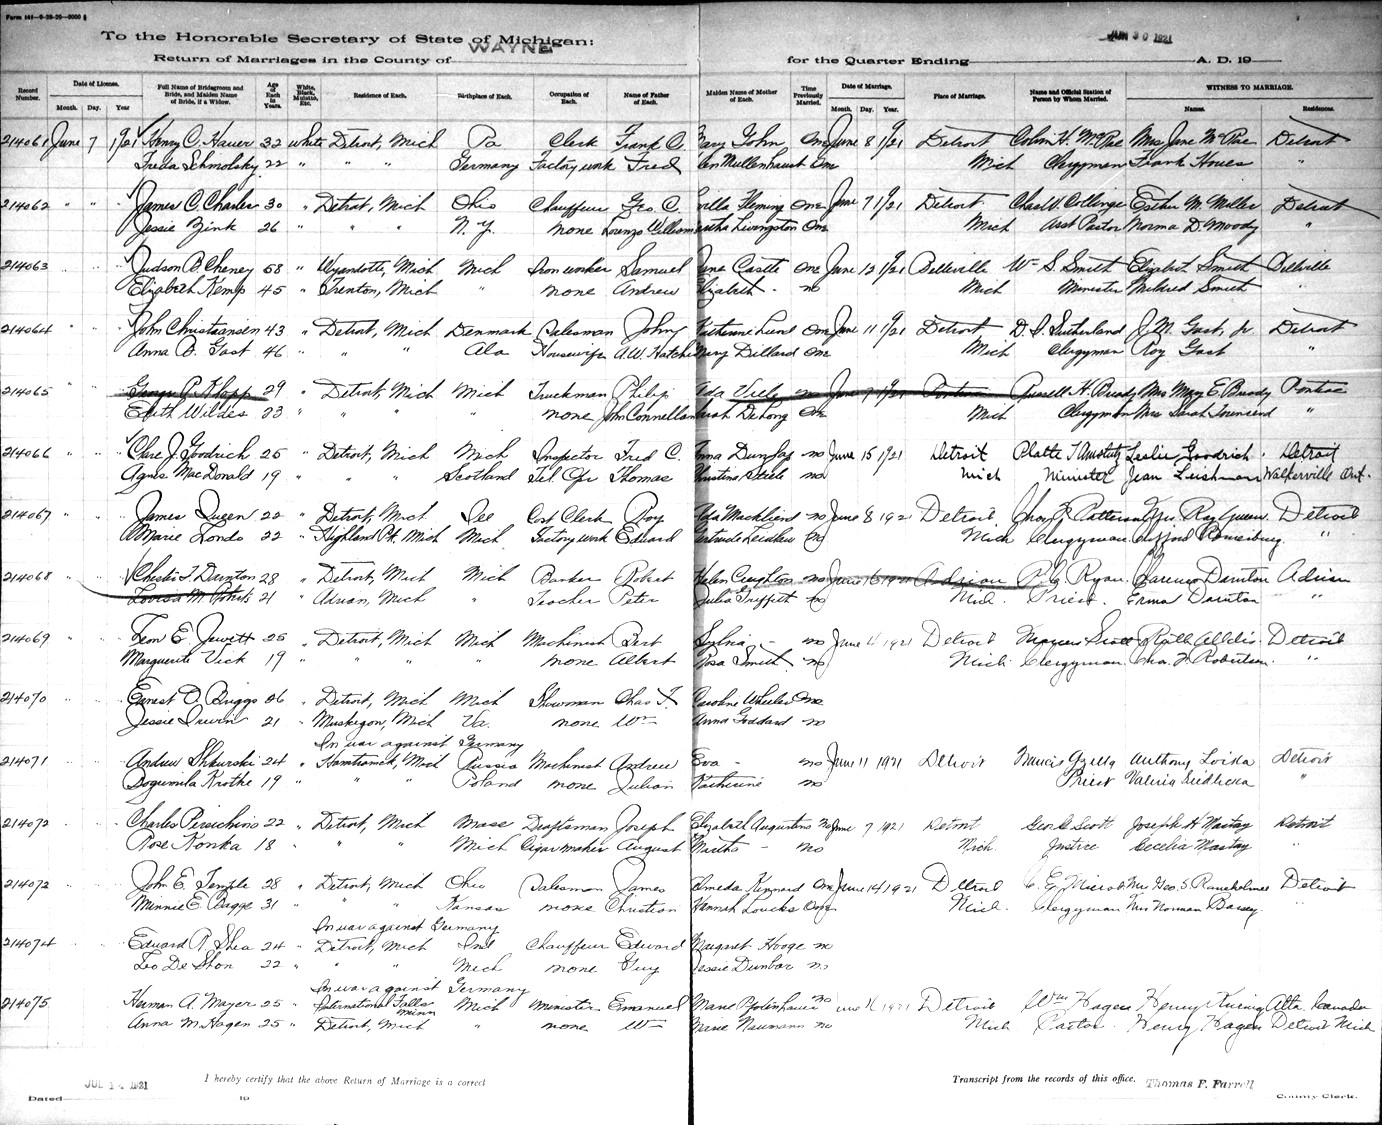 Form 141—9-28-20—9000
To the Honorable Secretary of State of Michigan:
Return of Marriages in the County of WAYNE for the Quarter Ending JUN 30 1921 A. D. 19
Record Number. Date of License. Month. Day. Year Full Name of Bridegroom and Bride, and Maiden Name of Bride, if a Widow. Age of Each in Years. White, Black, Mulatto, Etc. Residence of Each. Birthplace of Each. Occupation of Each. Name of Father of Each. Maiden Name of Mother of Each. Time Previously Married. Date of Marriage. Month. Day. Year. Place of Marriage. Name and Official Station of Person by Whom Married. WITNESS TO MARRIAGE. Names. Residences.
214061 June 7 1921 Henry C. Hauer 32 White Detroit, Mich Pa Clerk Frank C. Mary John One June 8 1921 Detroit Colin H. McPae Mrs Jane McPae Detroit
Freda Schmolsky 22 " " " Germany Factory work Fred Mullenhaust One Mich Clergyman Frank Howes "
214062 " " James C. Charles 30 " Detroit, Mich Ohio Chauffeur Geo C. Fleming One June 7 1921 Detroit Chas W. Collinge Esther M. Miller Detroit
Jessie Zink 26 " " " N. Y. none Lorenzo Livingston One Mich Asst Pastor Norma D. Moody "
214063 " " Judson B. Cheney 58 " Wyandotte, Mich Mich Iron worker Samuel Jane Castle One June 12 1921 Belleville Wm S. Smith Elizabeth Smith Belleville
Elizabeth Kemp 45 " Trenton, Mich " none Andrew Elizabeth - no Mich Minister Mildred Smith "
214064 " " John Christiansen 43 " Detroit, Mich Denmark Salesman John Katherine Lund One June 11 1921 Detroit D. S. Sutherland J. M. Gast, Jr Detroit
Anna B. Gast 46 " " " Ala Housewife A.W. Hatch Mary Dillard One Mich Clergyman Roy Gast "
214065 " George P. Klapp 29 " Detroit, Mich Mich Truckman Philip Ada no June 1921 Pontiac Russell H. Brady Mrs Mary E. Brady Pontiac
Edith Wildes 23 " " " " none John Connellan Sarah DeLong One Mich Clergyman Mrs Sarah Townsend "
214066 " " Clare J. Goodrich 25 " Detroit, Mich Mich Inspector Fred C. Anna Dunlap no June 15 1921 Detroit Platte T. Amstutz Leslie Goodrich Detroit
Agnes MacDonald 19 " " " Scotland Tel. Opr Thomas Christina Steele no Mich Minister Jean Leishman Walkerville Ont.
214067 " " James Queen 22 " Detroit, Mich Roy no June 8 1921 Detroit Patterson Mrs. Roy Queen Detroit
Marie Londo 22 " Highland Pk. Mich Mich Factory work Edward Gertrude Mich Clergyman Clifford "
214068 " " Chester T. Dainton 28 " Detroit, Mich Mich Robert Helen Creighton no June 16 1921 Adrian Ryan Clarence Dainton Adrian
Louisa M. Roberts 21 " Adrian, Mich " Teacher Peter Julia Griffith no Mich. Priest. Erma Dainton "
214069 " Leon E. Jewett 25 " Detroit, Mich Mich Machinist Bert Sylvia - no June 4 1921 Detroit Scott Detroit
Marguerite Vick 19 " " " " none Albert Rosa Smith no Mich Clergyman Chas. F. Robertson "
214070 Ernest O. Briggs 26 " Detroit, Mich Mich Showman Chas T. Caroline Wheeler One
Jessie Irwin 21 " Muskegon, Mich Va. none Wm Anna Goddard no
In war against Germany
214071 Andrew Shkurski 24 " Hamtramck, Mich Russia Machinist Andrew Eva - no June 11 1921 Detroit Francis Gzella Anthony Detroit
Bogumila Krotke 19 " " " Poland none Julian Katherine no Priest Valeria "
214072 Charles Persichino 22 " Detroit, Mich Mass Draftsman Joseph Elizabeth Augustine No June 7 1921 Detroit Geo C Scott Joseph H Mastay Detroit
Rose Konka 18 " " " Mich Cigar maker August Martha - No Mich. Justice Cecelia Mastay "
214072 John E. Temple 28 " Detroit, Mich Ohio Salesman James Almeda Kinnard One June 14 1921 Detroit Detroit
Minnie E. Bagge 31 " " " Kansas none Christian Hannah Loucks One Mich. Clergyman Mrs Norman "
In war against Germany
214074 Edward R. Shea 24 " Detroit, Mich Ind Chauffeur Edward Margaret Hooge no
Leo De Shon 22 " " " Mich none Guy Jessie Dunbar no
In war against Germany
214075 Herman A. Mayer 25 " International Falls Minn Mich Minister Emanuel Marie no June 16 1921 Detroit Wm Hagen Henry Alta, Canada
Anna M. Hagen 25 " Detroit, Mich " none Wm Marie Naumann no Mich Pastor Henry Hagen Detroit Mich
JUL 14 1921 I hereby certify that the above Return of Marriage is a correct Transcript from the records of this office. Thomas F. Farrell
Dated 19 County Clerk.